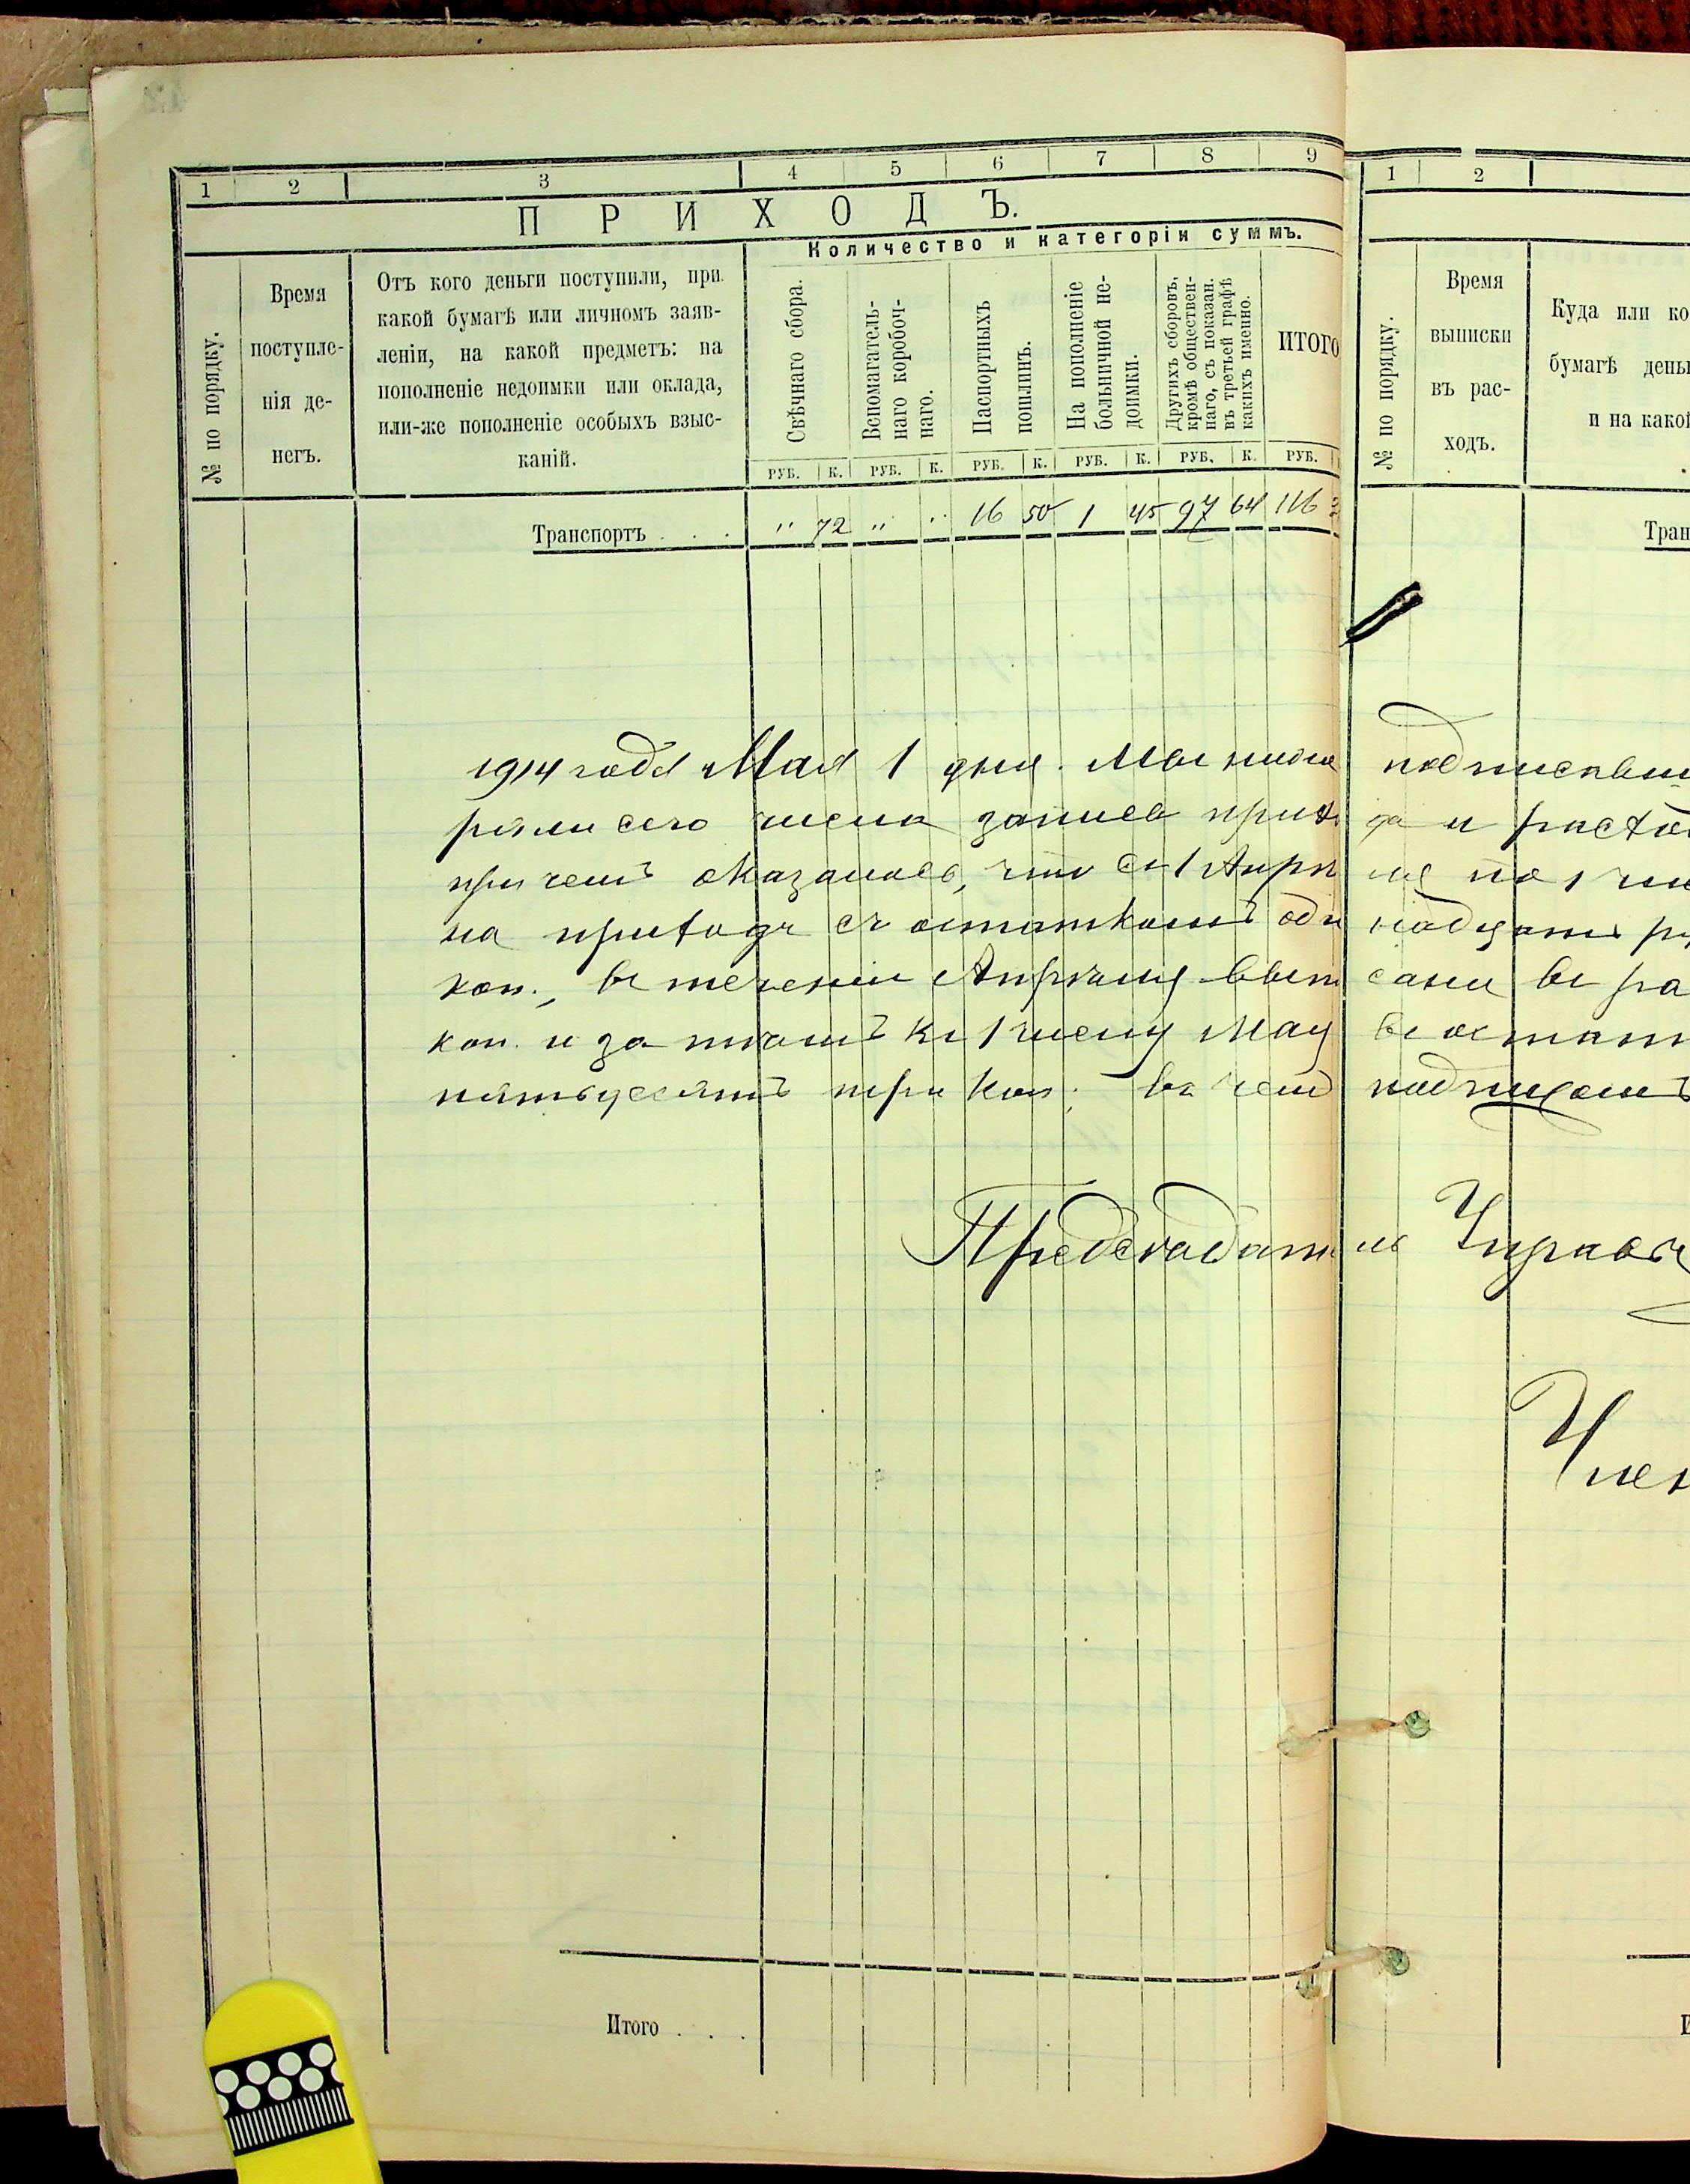 1 2 3 4 5 6 7 8 9
ПРИХОДЪ.
Количество и категоріи суммъ.
№ по порядку.
Время
поступле-
нія де-
негъ.
Отъ кого деньги поступили, при
какой бумагѣ или личномъ заяв-
леніи, на какой предметъ: на
пополненіе недоимки или оклада,
или-же пополненіе особыхъ взыс-
каній.
Свѣчнаго сбора.
Вспомагатель-
наго коробоч-
наго.
Паспортныхъ
пошлинъ.
На пополненіе
больничной не-
доимки.
Другихъ сборовъ,
кромѣ обществен-
наго, съ показан.
въ третьей графѣ
какихъ именно.
ИТОГО
РУБ. К. РУБ. К. РУБ. К. РУБ. К. РУБ. К. РУБ.
Транспортъ . . . " 72 " " 16 50 1 45 97 64 116
1 2
№ по порядку.
Время
выписки
въ рас-
ходъ.
Куда или ко
бумагѣ день
и на какой
Тран
1914 года Мая 1 дня. Мы ниже подписавши
сего числа записа прихо да и расход
при чемъ оказалось, что съ 1 Апрѣ ля по 1
на приходѣ съ остаткомъ оди надцать ру
коп., въ теченіи Апрѣля выпи саны въ ра
коп. и за тѣмъ къ 1 числу Мая въ остат
пятьдесятъ три коп; въ чемъ подпишемъ
Предсѣдате ль Управ
Член
Итого . . .